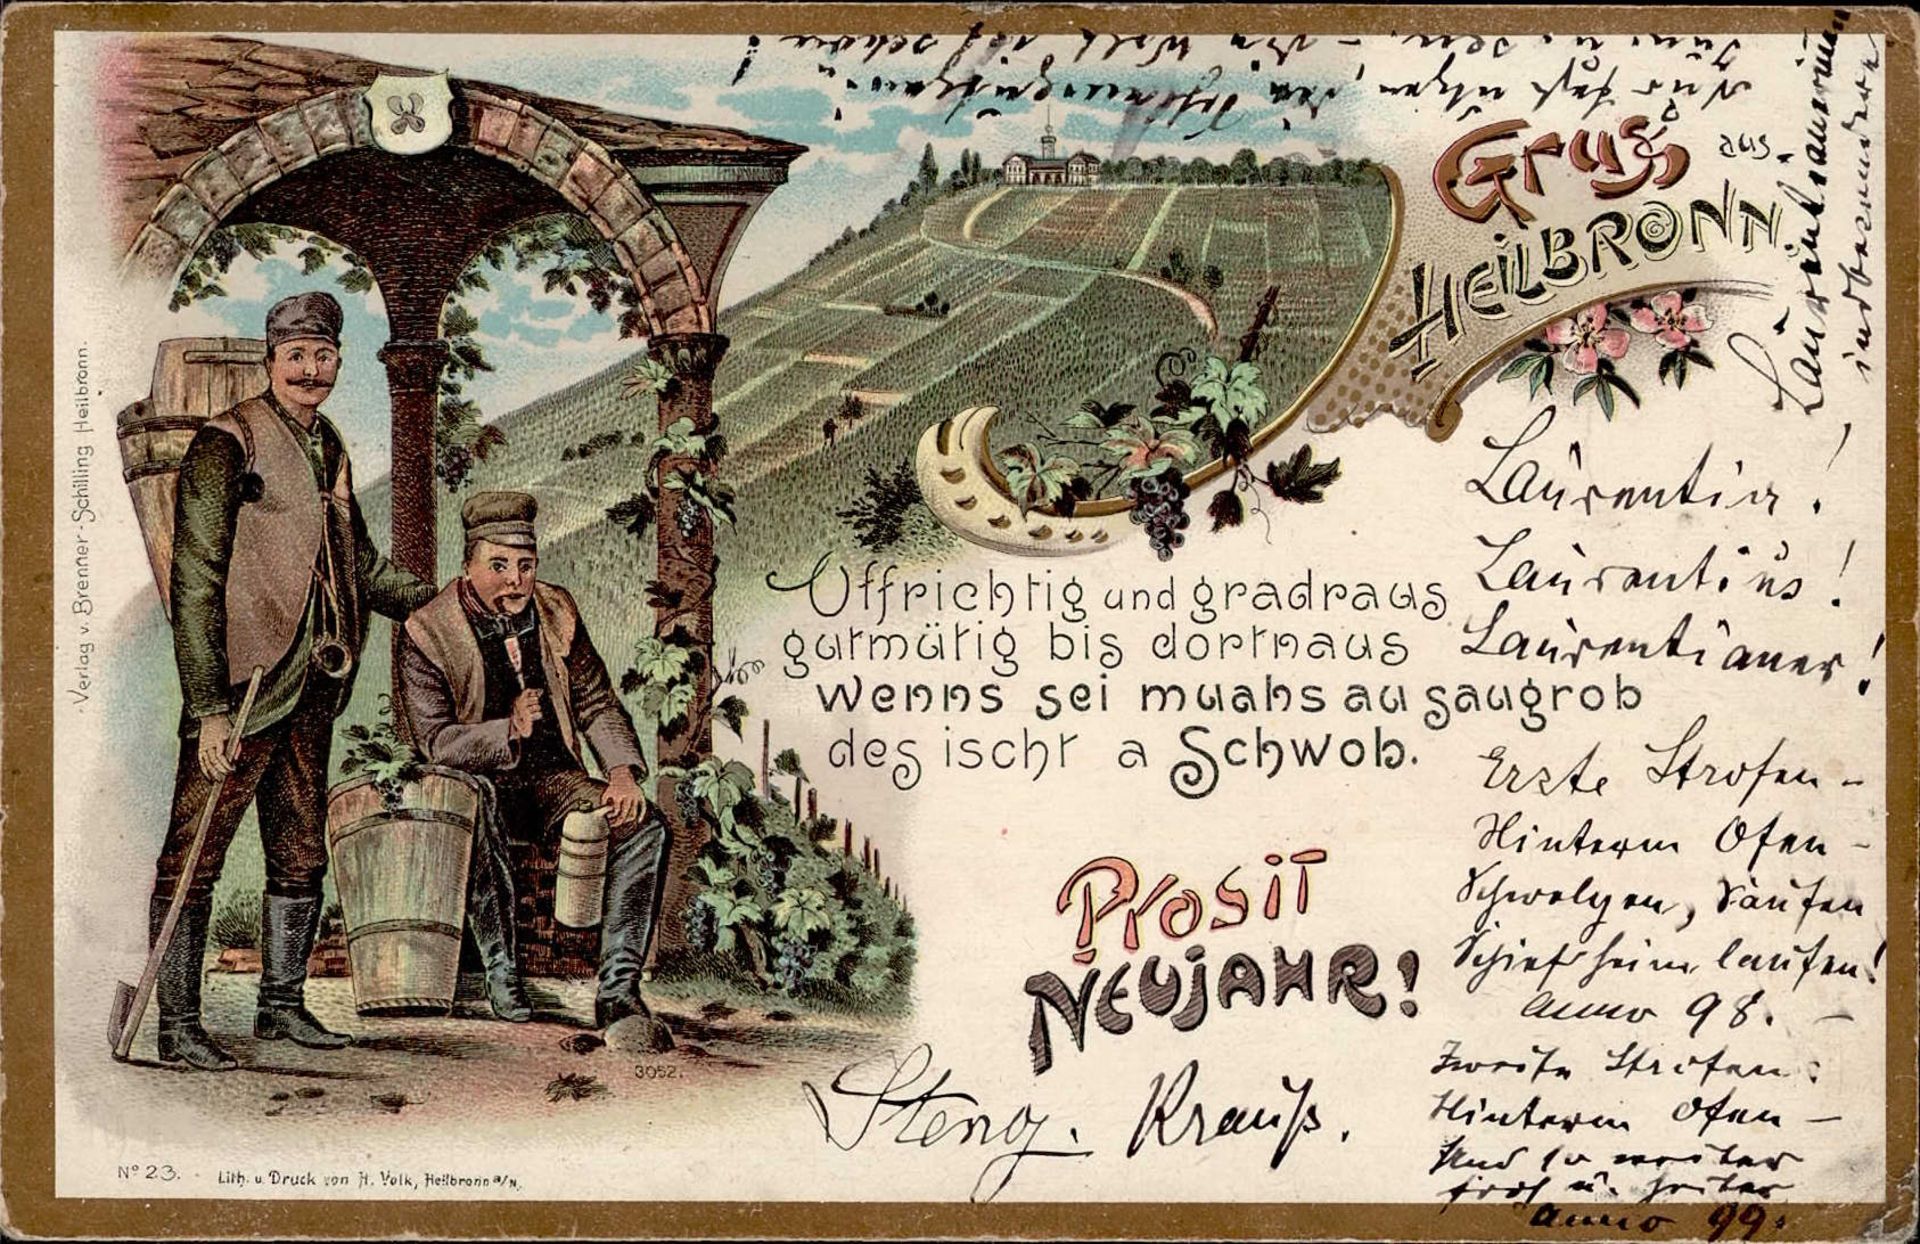 Gruß aus
HEILBRONN
Uffrichtig und gradraus
gutmütig bis dortnaus
wenns sei muahs au saugrob
des ischt a Schwob.
Prosit
NEUJAHR!
Verlag v. Brenner-Schilling Heilbronn.
3052.
Nº 23.
Lith. u. Druck von H. Volk, Heilbronn a/N.
Laurentianerinnen
insbesondere
Laurentia!
Laurentius!
Laurentianer!
Erste Strofen –
Hinterm Ofen –
Schwelgen, Saufen
Schief heim laufen!
Anno 98. –
Zweite Strofen:
Hinterm Ofen –
Und so weiter
froh u. heiter
Anno 99.
Krauß.